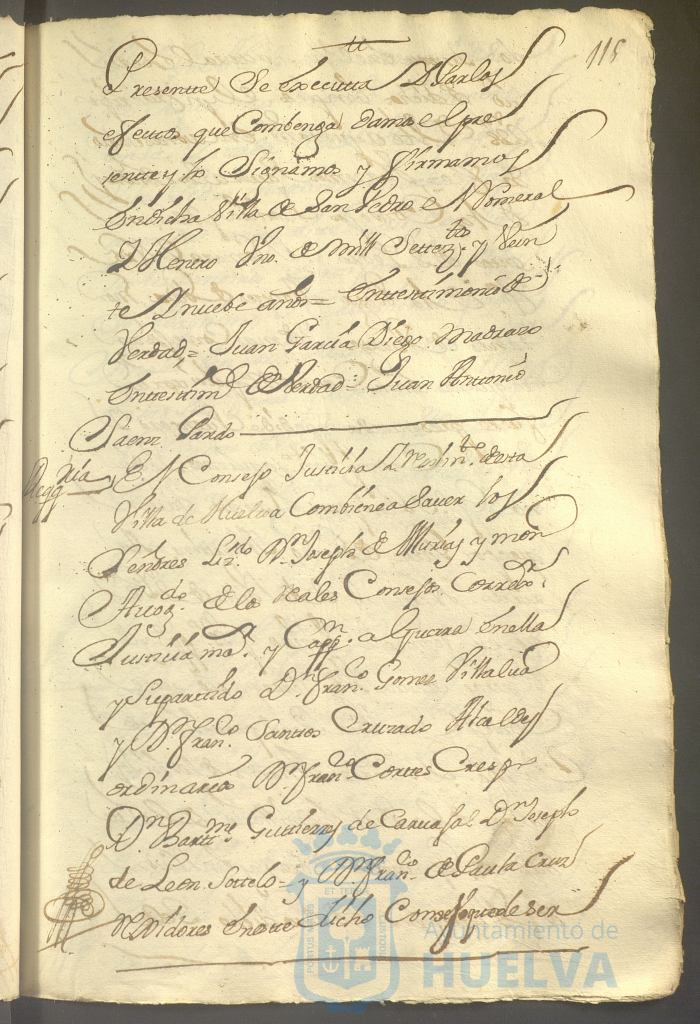 115
Presente Se executa D Carlos
efectos que Combenga damos el pre
sente y lo Signamos y firmamos
En dicha Villa de San Pedro
de Mill Setez.tos y Vein
te Anuebe años = Entestimonio de
Verdad = Juan Garcia Diego Madrazo
Entestim.º de Verdad = Juan Antonio
Saenz Pardo
El Consejo Justicia Y desta
Villa de Huelva Combiene a Saver los
Señores Liz.do D.n Joseph de Murias y mon
Avog.do de los Reales Consejos Corred.r
Justicia ma.r y Cap.n a Guerra En ella
y Su partido D.n Fran.co Gomez Villalva
y D.n Fran.co Santos Cruzado Alcaldes
ordinarios D.n Fran.co Cortes Crespo
D.n Bart.me Gutierrez de Carvajal D.n Joseph
de Leon Sottelo = y D.n Fran.co de Paula Cruz
Rexidores En este dicho Consejo que de ser
Ayuntamiento de
HUELVA